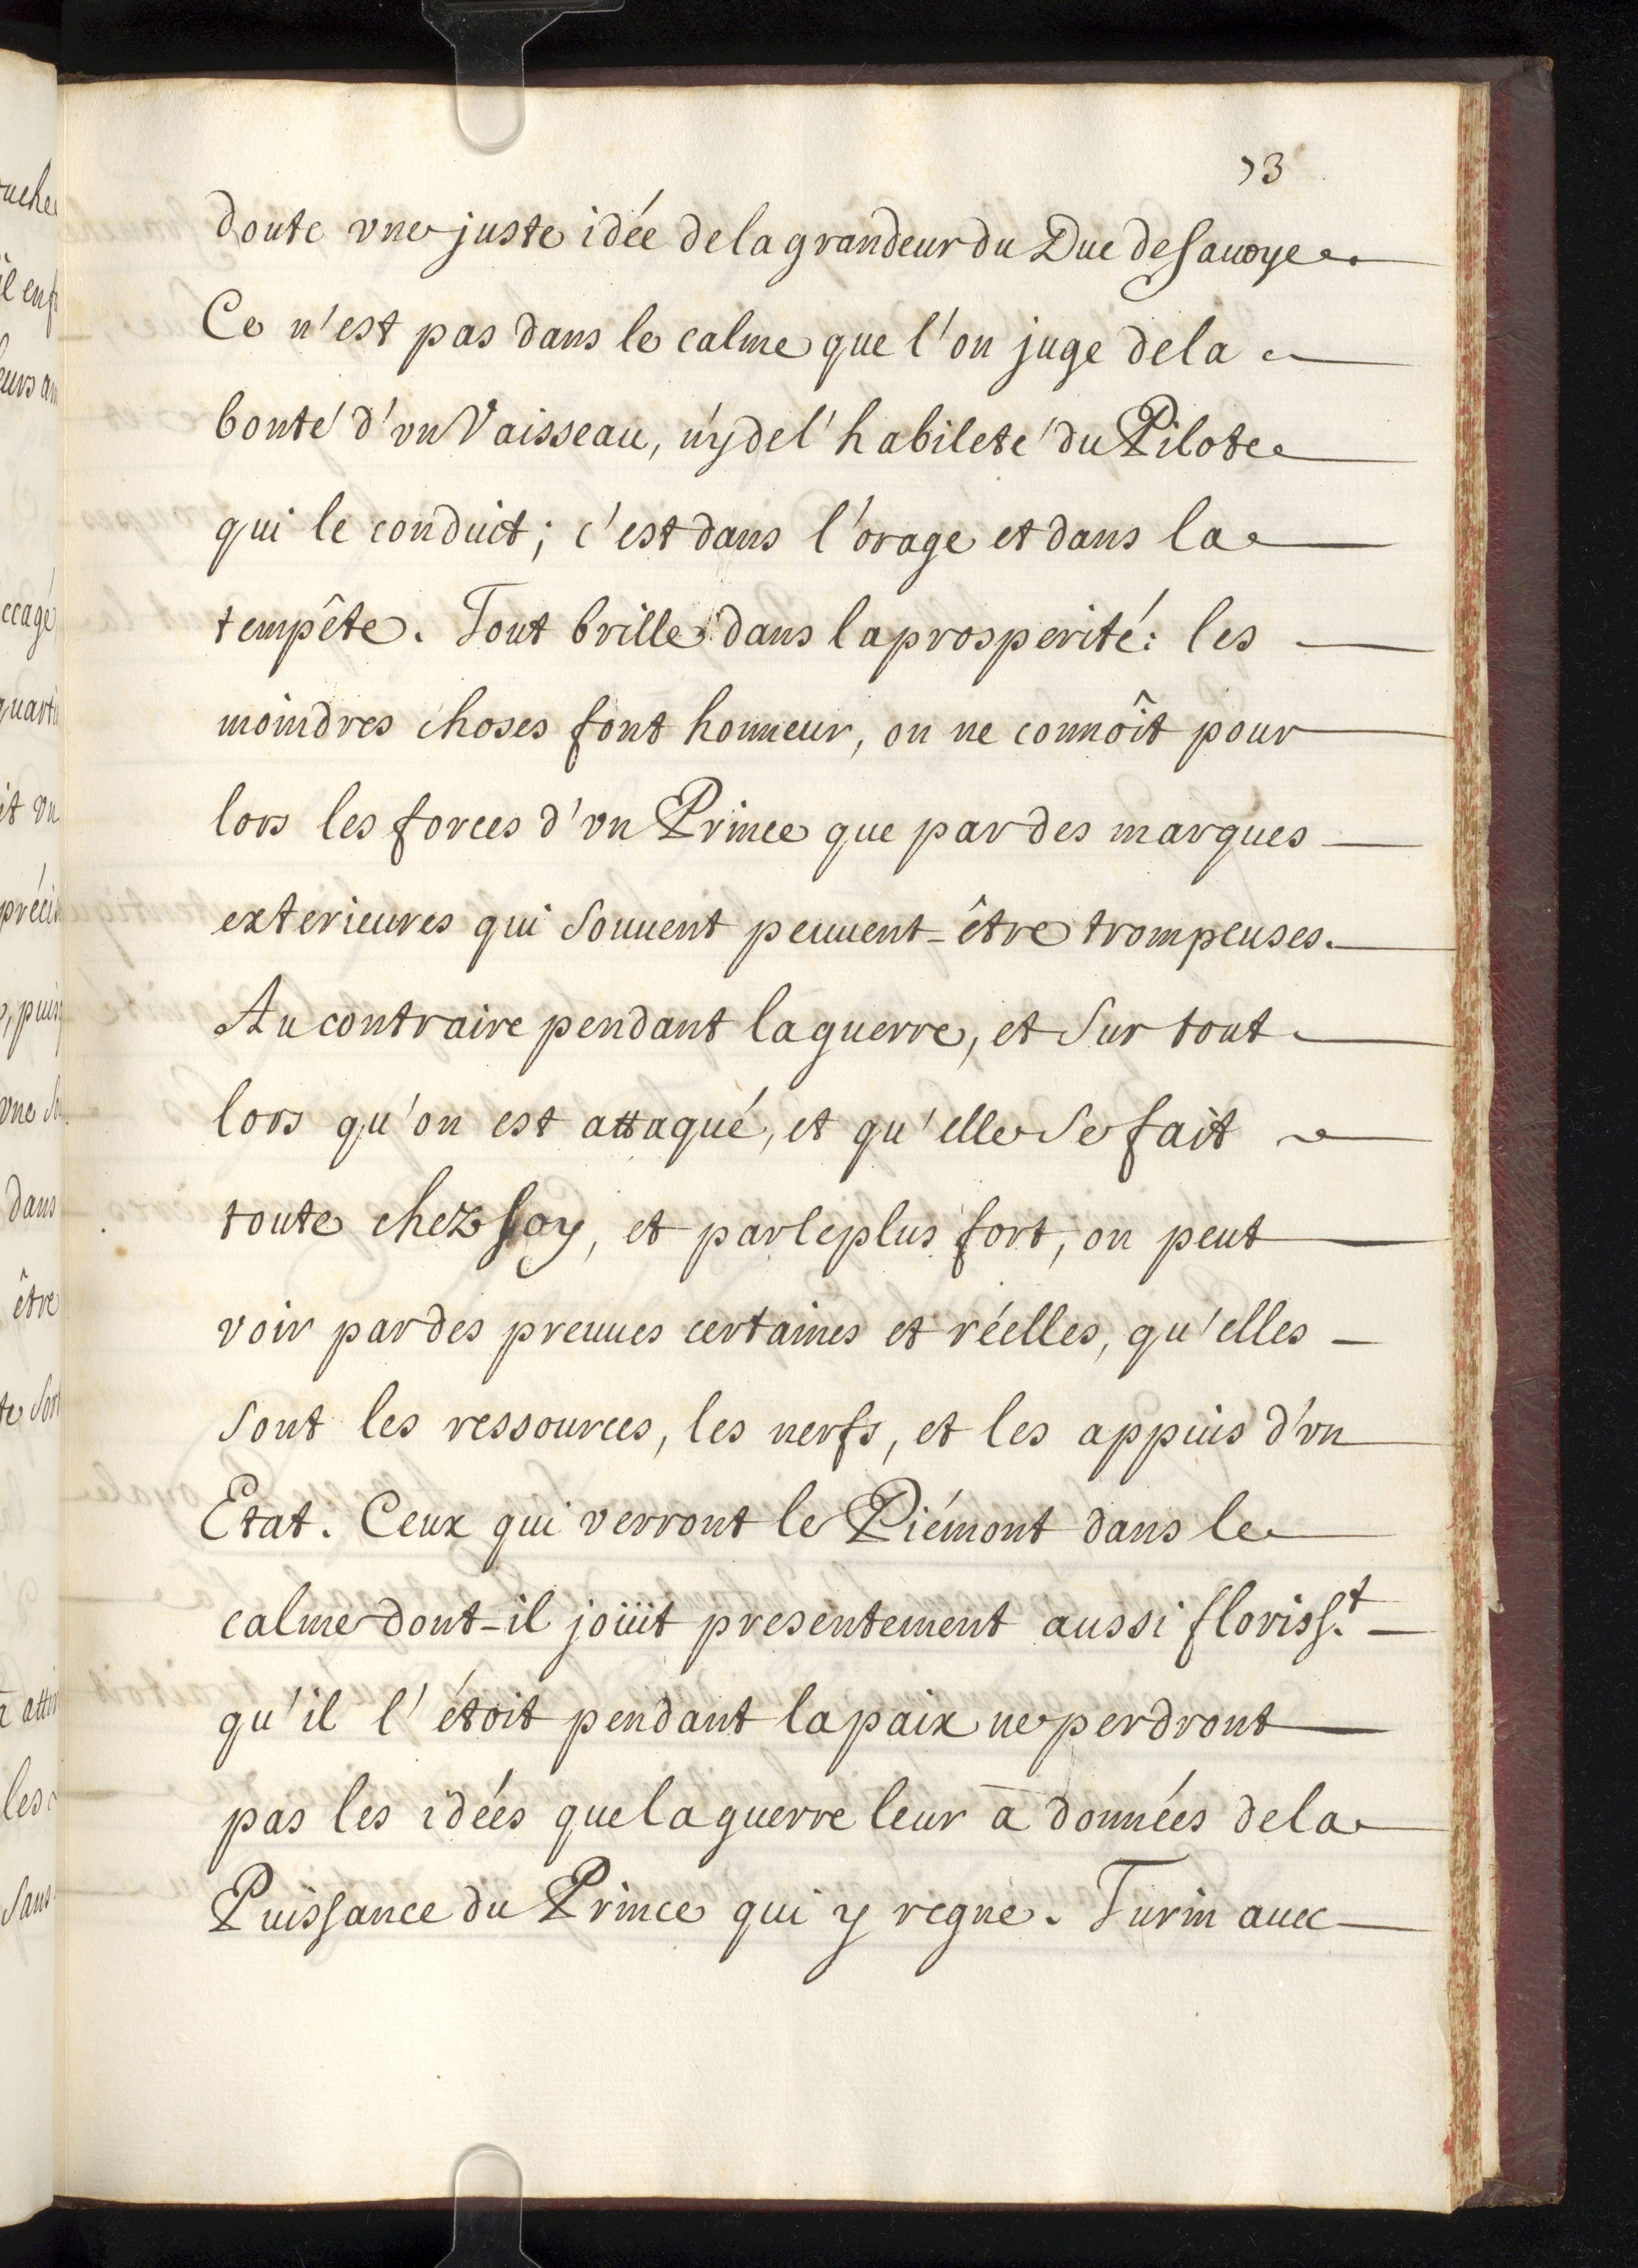 73
doute vne juste idée de la grandeur du Duc de Sauoye.
Ce n'est pas dans le calme que l'on juge de la
bonté d'vn Vaisseau, ny de l'habileté du Pilote
qui le conduit; c'est dans l'orage et dans la
tempête. Tout brille dans la prosperité: les
moindres choses font honneur, on ne connoît pour
lors les forces d'vn Prince que par des marques
exterieures qui souuent peuuent-être trompeuses.
Au contraire pendant la guerre, et sur tout
lors qu'on est attaqué, et qu'elle se fait
toute chez soy, et par le plus fort, on peut
voir par des preuues certaines et réelles, qu'elles
sont les ressources, les nerfs, et les appuis d'vn
Etat. Ceux qui verront le Piémont dans le
calme dont-il joüit presentement aussi floriss.t
qu'il l'étoit pendant la paix ne perdront
pas les idées que la guerre leur a données de la
Puissance du Prince qui y regne. Turin auec